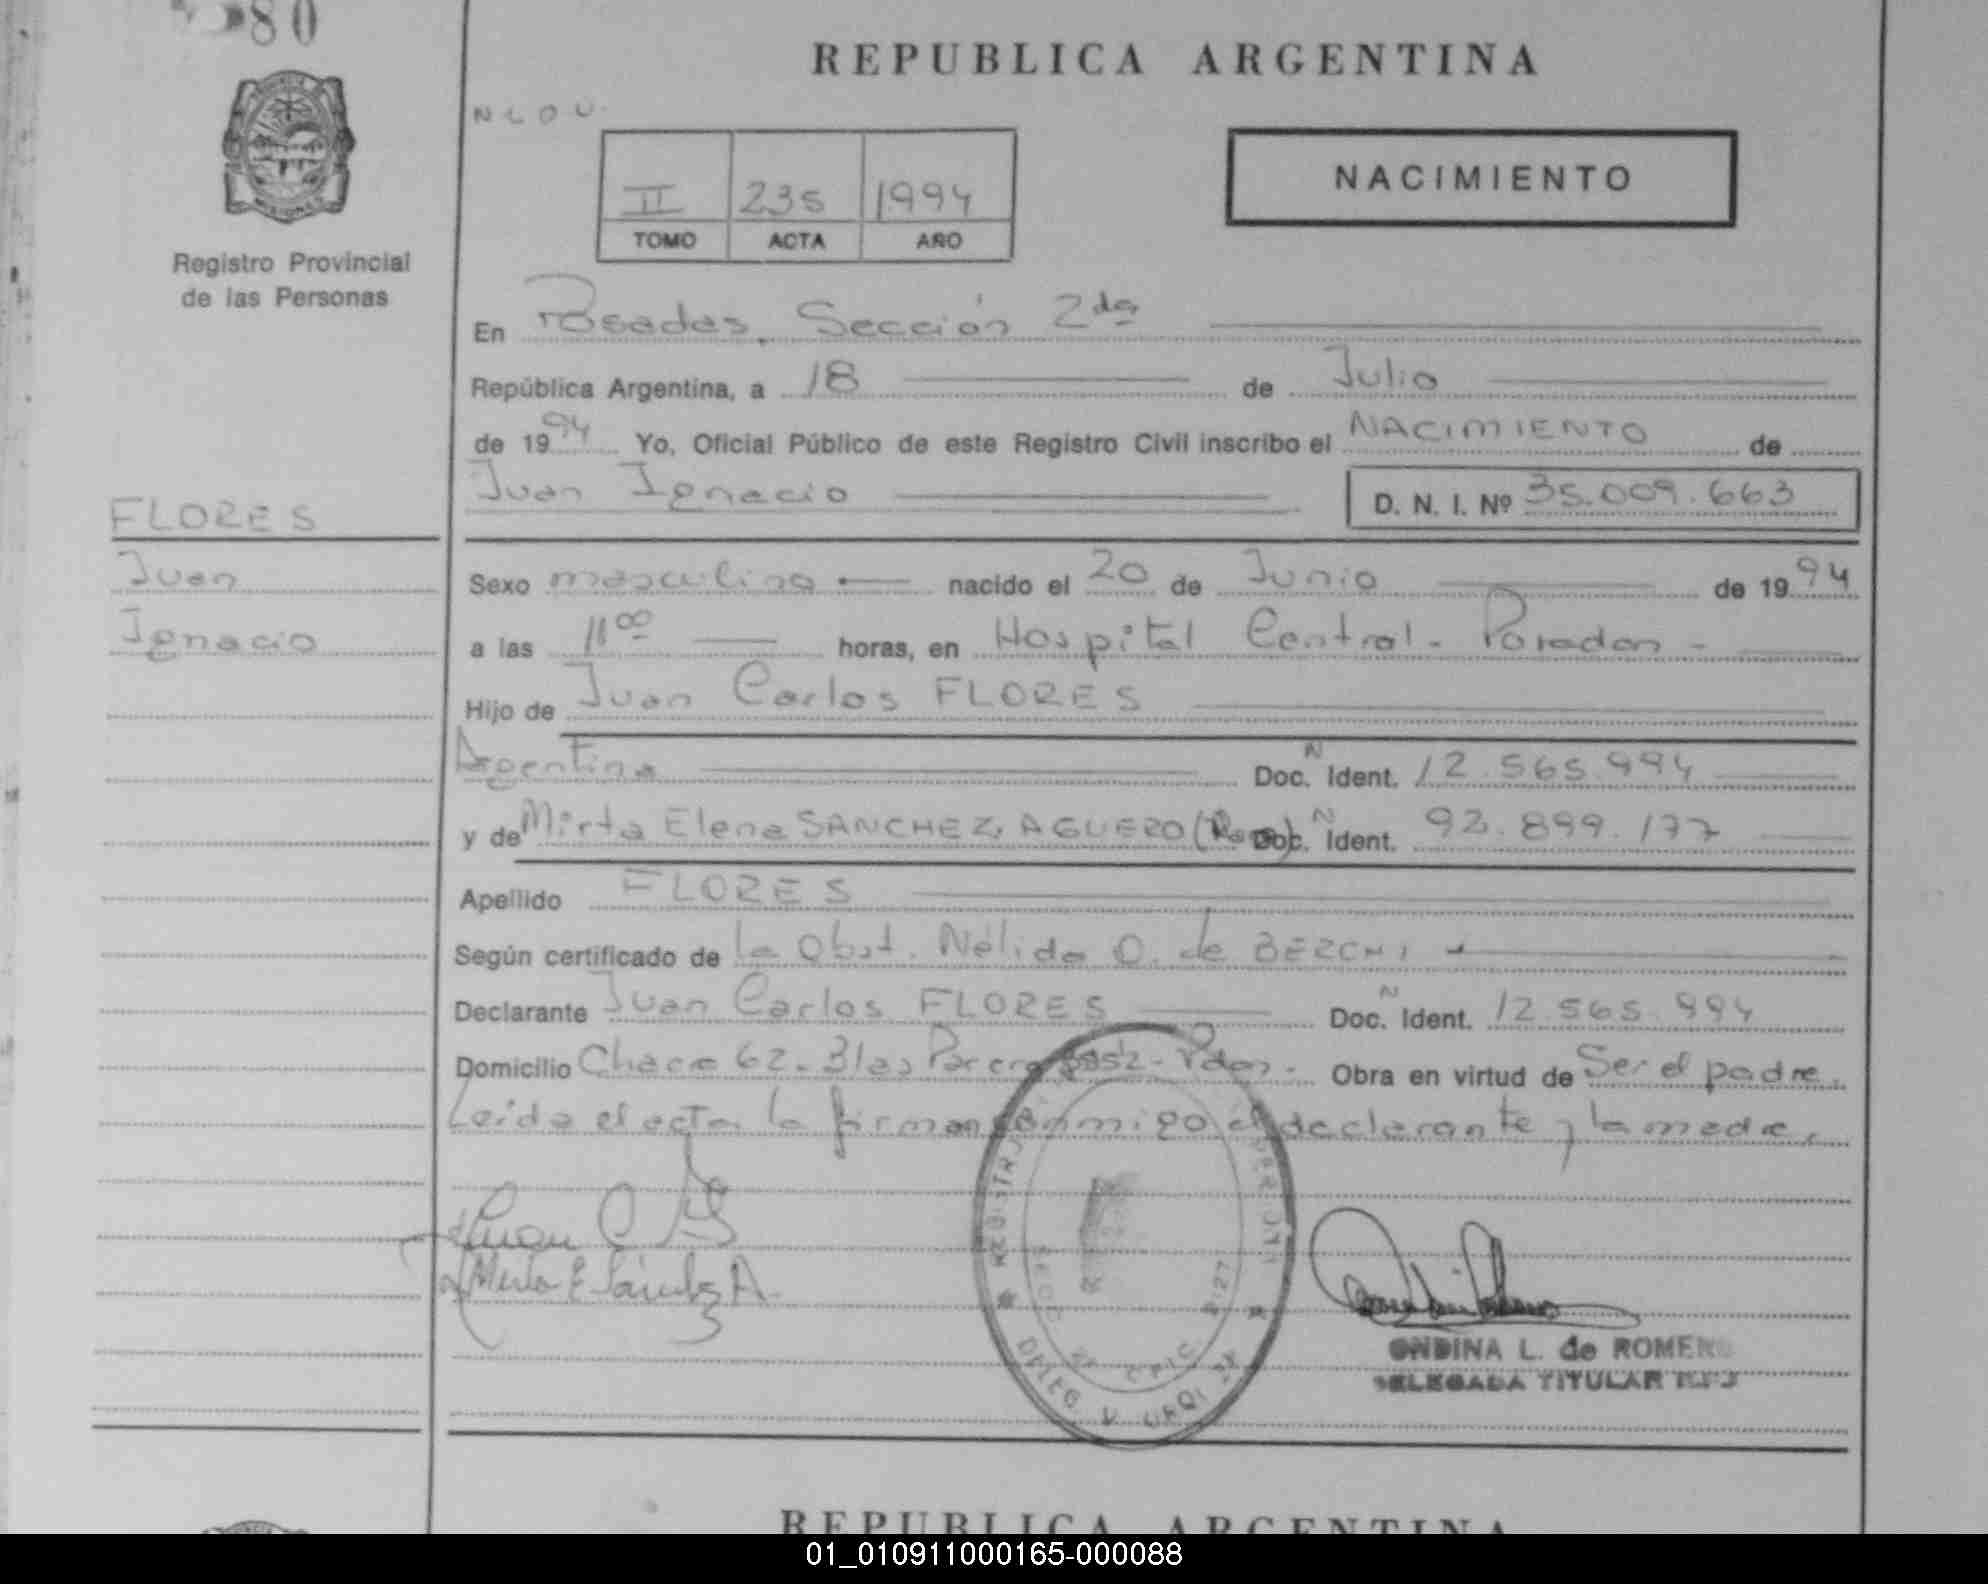 80
REPUBLICA ARGENTINA
N L O U.
MISIONES
Registro Provincial
de las Personas
II 235 1994
TOMO ACTA AÑO
NACIMIENTO
En Posadas, Sección 2da
República Argentina, a 18 de Julio
de 1994 Yo, Oficial Público de este Registro Civil inscribo el NACIMIENTO de
Juan Ignacio D. N. I. Nº 35.009.663
FLORES
Juan
Ignacio
Sexo masculino nacido el 20 de Junio de 1994
a las 11 00 horas, en Hospital Central - Posadas -
Hijo de Juan Carlos FLORES
Argentina Doc. N Ident. 12.565.994
y de Mirta Elena SANCHEZ AGUERO Doc. N Ident. 92.899.177
Apellido FLORES
Según certificado de la Obst. Nélida O. de
Declarante Juan Carlos FLORES Doc. N Ident. 12.565.994
Domicilio Chacra 62 - Obra en virtud de Ser el padre.
Leída el acta la firman conmigo el declarante y la madre.
Juan C
Mirta E Sánchez A.
ONDINA L. de ROMERO
DELEGADA TITULAR
REPUBLICA ARGENTINA
01_010911000165-000088